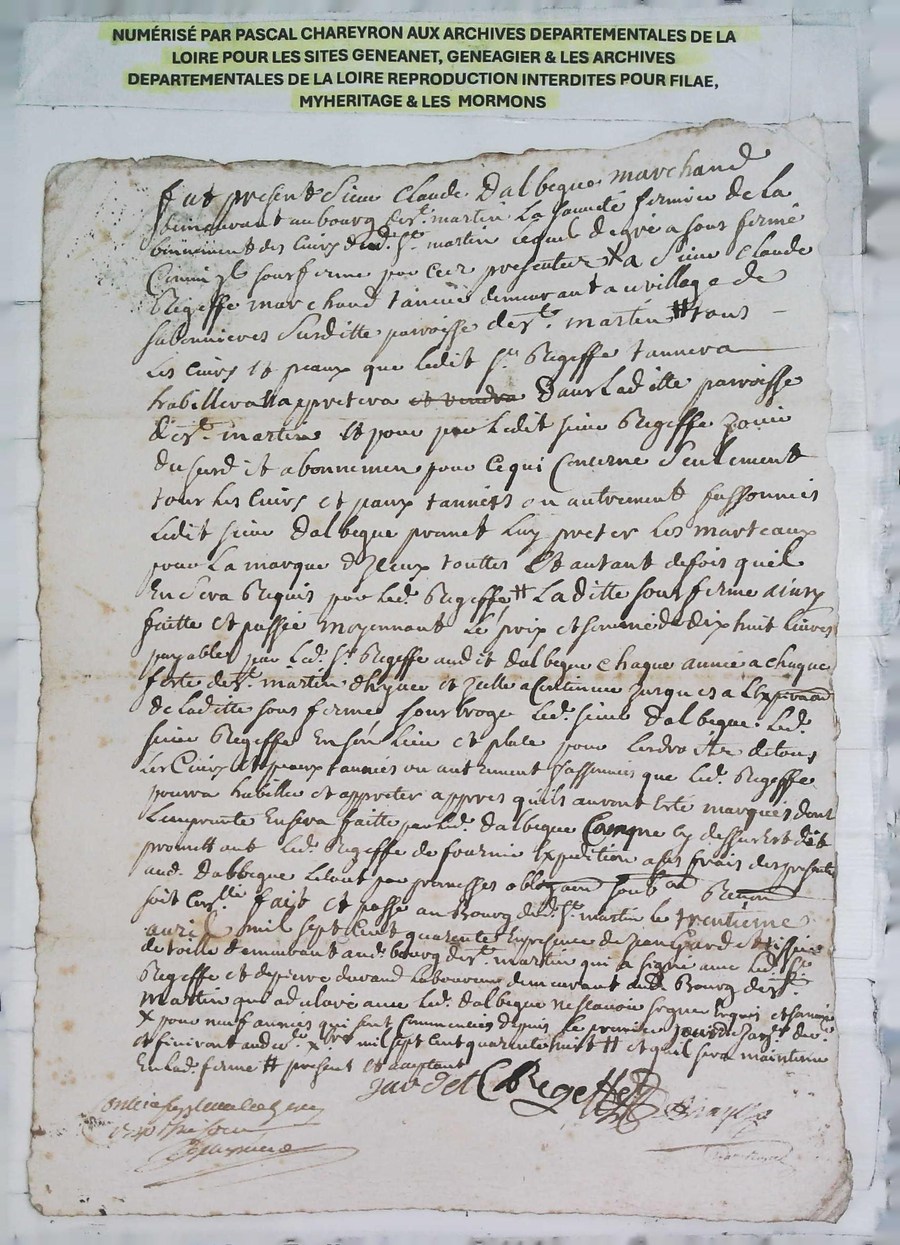 NUMÉRISÉ PAR PASCAL CHAREYRON AUX ARCHIVES DEPARTEMENTALES DE LA
LOIRE POUR LES SITES GENEANET, GENEAGIER & LES ARCHIVES
DEPARTEMENTALES DE LA LOIRE REPRODUCTION INTERDITES POUR FILAE,
MYHERITAGE & LES MORMONS
fut present Sieur Claude Dalbegue marchand
demeurant au bourg de st. martin La sauveté fermier de la
des Cuirs dud. st. martin lequel de gré a sous fermé
sous ferme par ces presentes X a Sieur Claude
Regeffe marchand tanneur demeurant au village de
Sabonnieres Surditte parroisse de st. martin # tous
Les Cuirs et peaux que ledit sr. Regeffe tannera
habillera appretera et vendra dans Laditte parroisse
de st. martin et pour par Ledit sieur Regeffe jouir
du surdit abonnemen pour ce qui Concerne Seulement
tous les Cuirs et peaux tannées ou autrement fassonnées
Ledit sieur Dalbegue promet Luy preter Les marteaux
pour La marque d'Iceux touttes Et autant de fois quil
En Sera Requis par led. Regeffe # Laditte sous ferme ainsy
faitte et passée moyennant Le prix et somme de dix huit Livres
payables par Led. sr. Regeffe aud it Dalbegue chaque année a chaque
feste de st. martin d'hyver et Jcelle a Continuer Jusques a L'expiration
de Laditte sous ferme led. sieur Dalbegue Led.
sieur Regeffe En son Lieu et place pour Les droits de tous
Les Cuirs et peaux tannées ou autrement fassonnées que led. Regeffe
pourra habiller et appreter appres qu'ils auront Esté marqués dont
L'emprinte En sera faitte par led. Dalbegue Comme cy dessus Est dit
promettant led. Regeffe de fournir Expedition a ses frais des presentes
aud. Dalbegue par promesses
fait et passé au Bourg dud. st. martin le trentieme
avril mil sept Cent quarente En presence de Jean Jardet tissier
de toille demeurant aud. bourg de st. martin qui a signé avec Led. sr.
Regeffe et de pierre durand Laboureur demeurant aud. Bourg de st.
Martin qui a declaré avec led. Dalbegue ne scavoir signer Enquis et sommé
X pour neuf années qui sont Commencées depuis le premier Janv. der.
et finiront mil sept Cent quarente huit # et quil sera maintenu
En lad. ferme # present et acceptant
Jardet C Regeffe